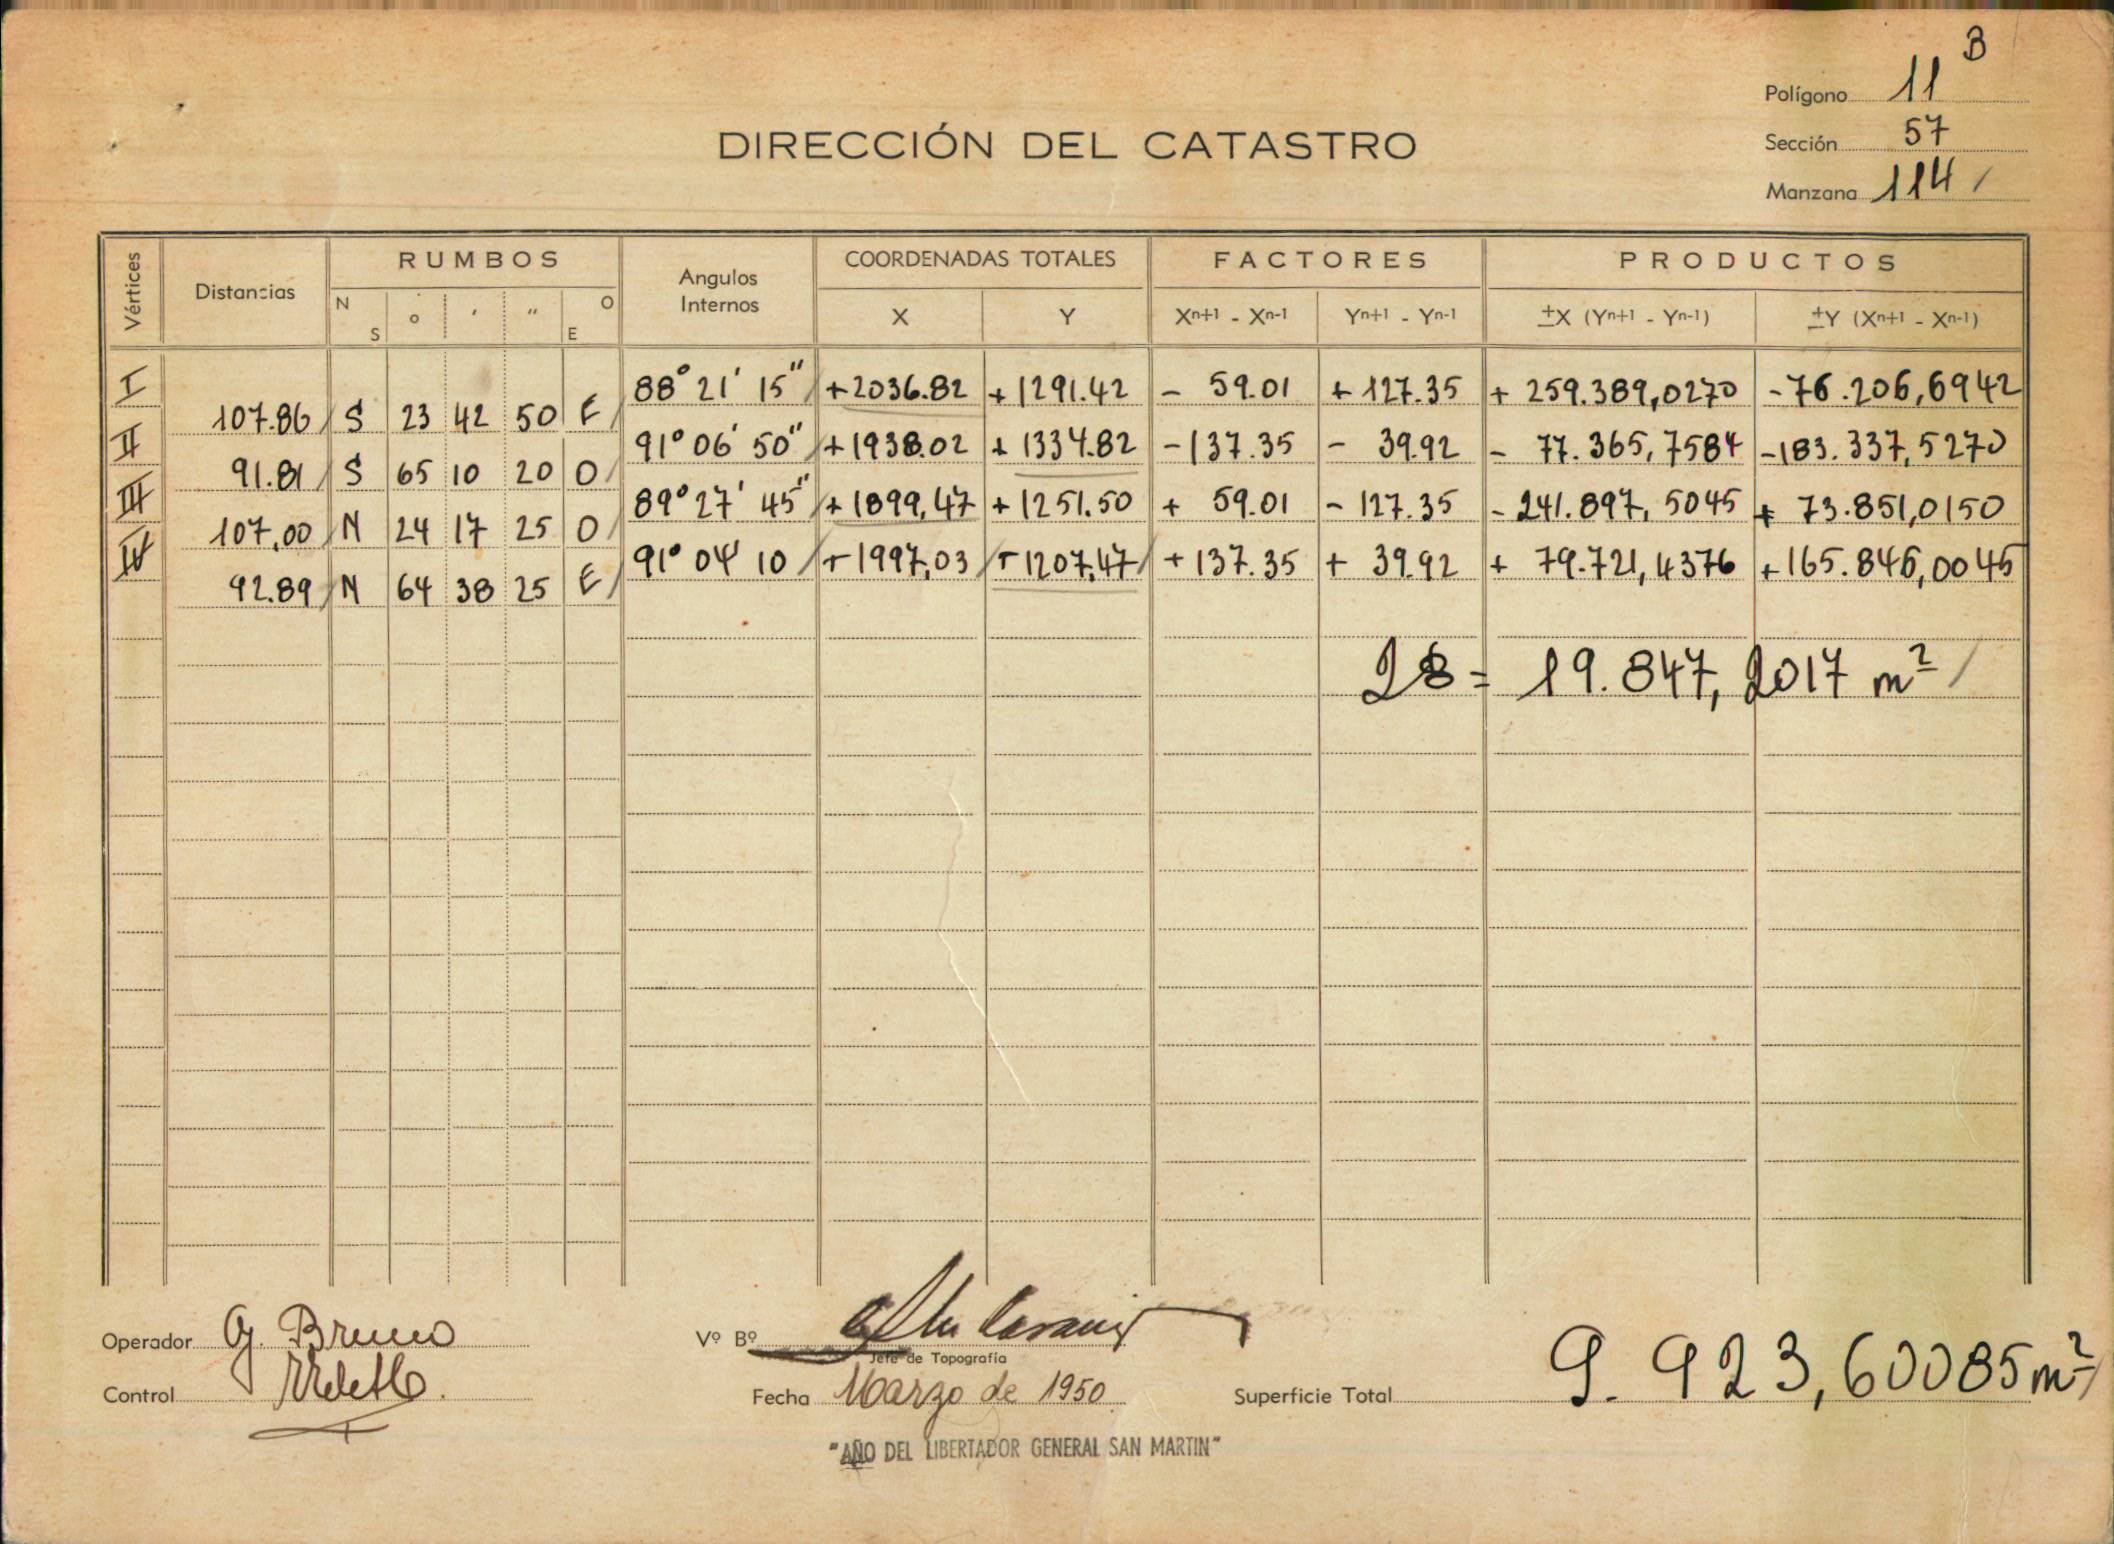 B
Polígono 11
DIRECCIÓN DEL CATASTRO
Sección 57
Manzana 114
Vértices Distancias RUMBOS Angulos Internos COORDENADAS TOTALES FACTORES PRODUCTOS
N S ° ' " O E X Y Xn+1 - Xn-1 Yn+1 - Yn-1 ±X (Yn+1 - Yn-1) ±Y (Xn+1 - Xn-1)
I 88° 21' 15" +2036.82 +1291.42 - 59.01 + 127.35 + 259.389,0270 -76.206,6942
107.86 S 23 42 50 E
II 91° 06' 50" +1938.02 + 1334.82 -137.35 - 39.92 - 77.365,7584 -183.337,5270
91.81 S 65 10 20 O
III 89° 27' 45" +1899,47 +1251.50 + 59.01 - 127.35 -241.897,5045 + 73.851,0150
107,00 N 24 17 25 O
IV 91° 04' 10 +1997,03 +1207,47 +137.35 + 39.92 + 79.721,4376 +165.846,0045
92.89 N 64 38 25 E
2S = 19.847,2017 m²
Operador Bruno
Vº Bº
Jefe de Topografía
Control
Fecha Marzo de 1950
Superficie Total 9.923,60085 m²
"AÑO DEL LIBERTADOR GENERAL SAN MARTIN"